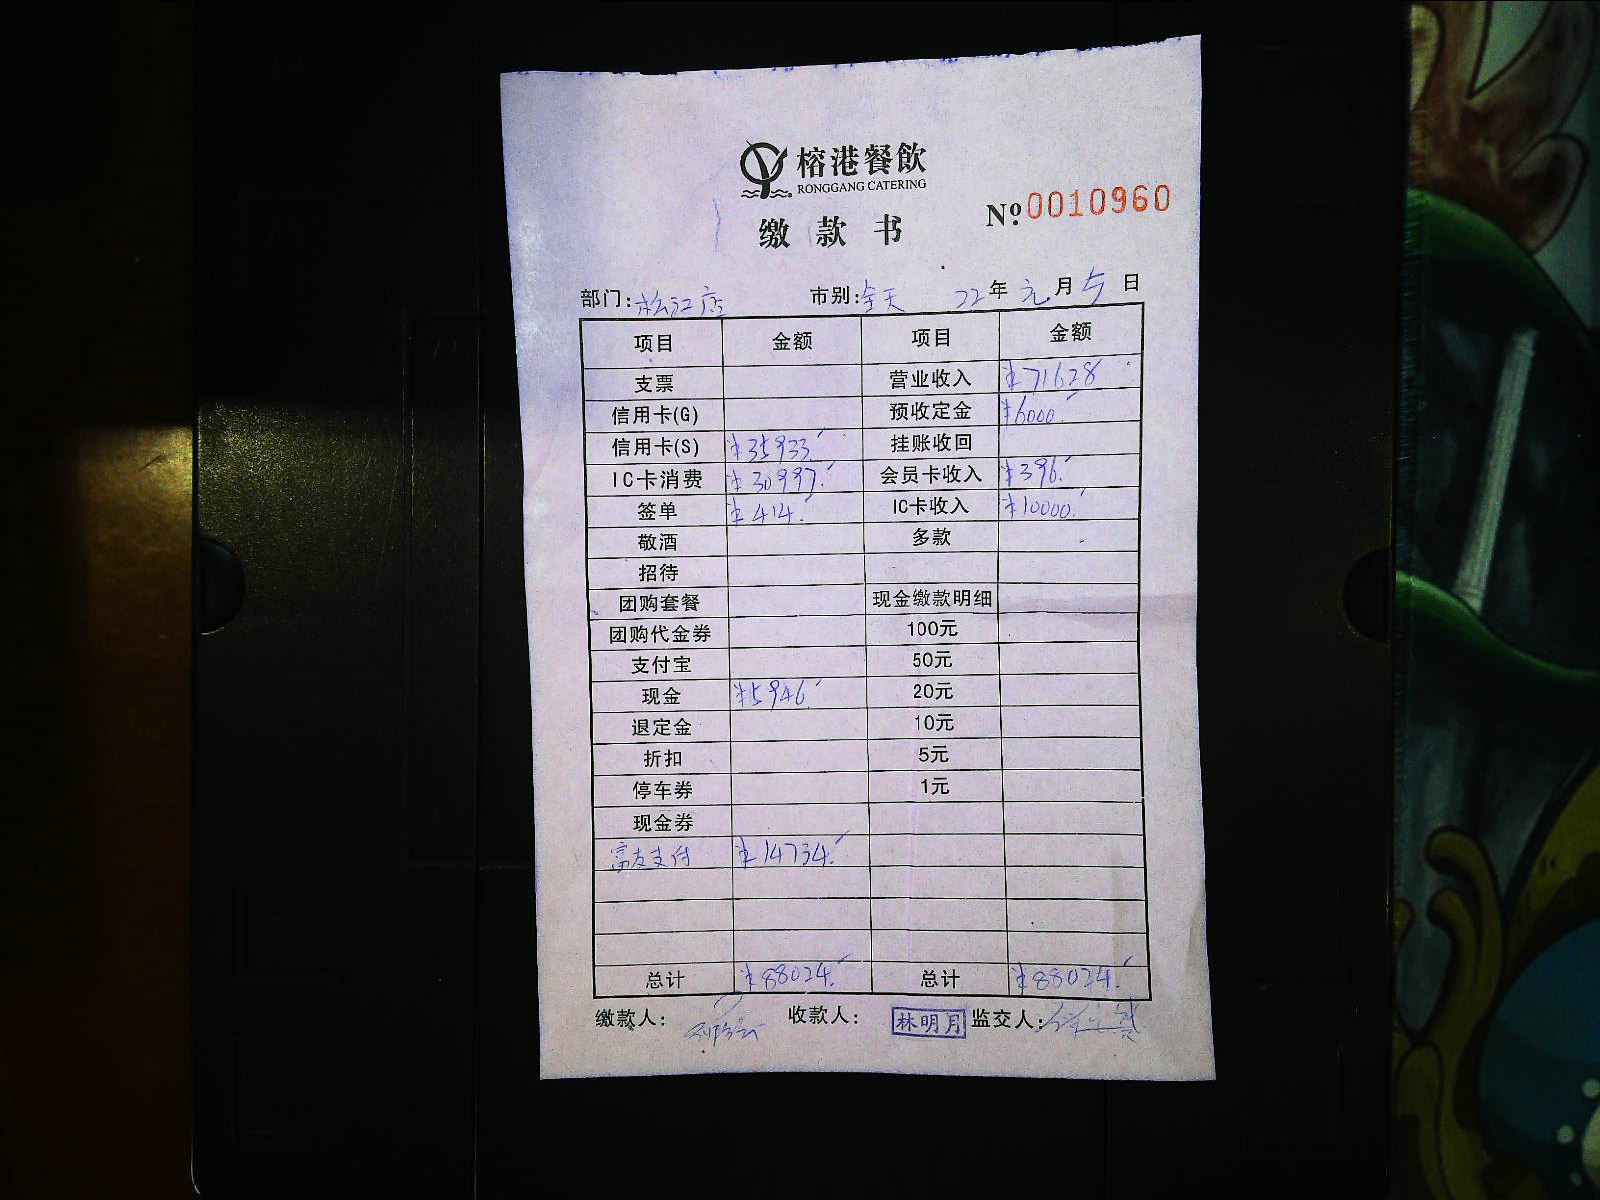 榕港餐飲
RONGGANG CATERING
缴款书
№ 0010960
部门: 松江店 市别: 全天 22年元月5日
项目 金额 项目 金额
支票 营业收入 ¥71628
信用卡(G) 预收定金 ¥6000.
信用卡(S) ¥35933. 挂账收回
IC卡消费 ¥30997. 会员卡收入 ¥396.
签单 ¥414. IC卡收入 ¥10000.
敬酒 多款
招待
团购套餐 现金缴款明细
团购代金券 100元
支付宝 50元
现金 ¥5946. 20元
退定金 10元
折扣 5元
停车券 1元
现金券
富友支付 ¥14734.
总计 ¥88024. 总计 ¥88024.
缴款人: 收款人: 林明月 监交人: